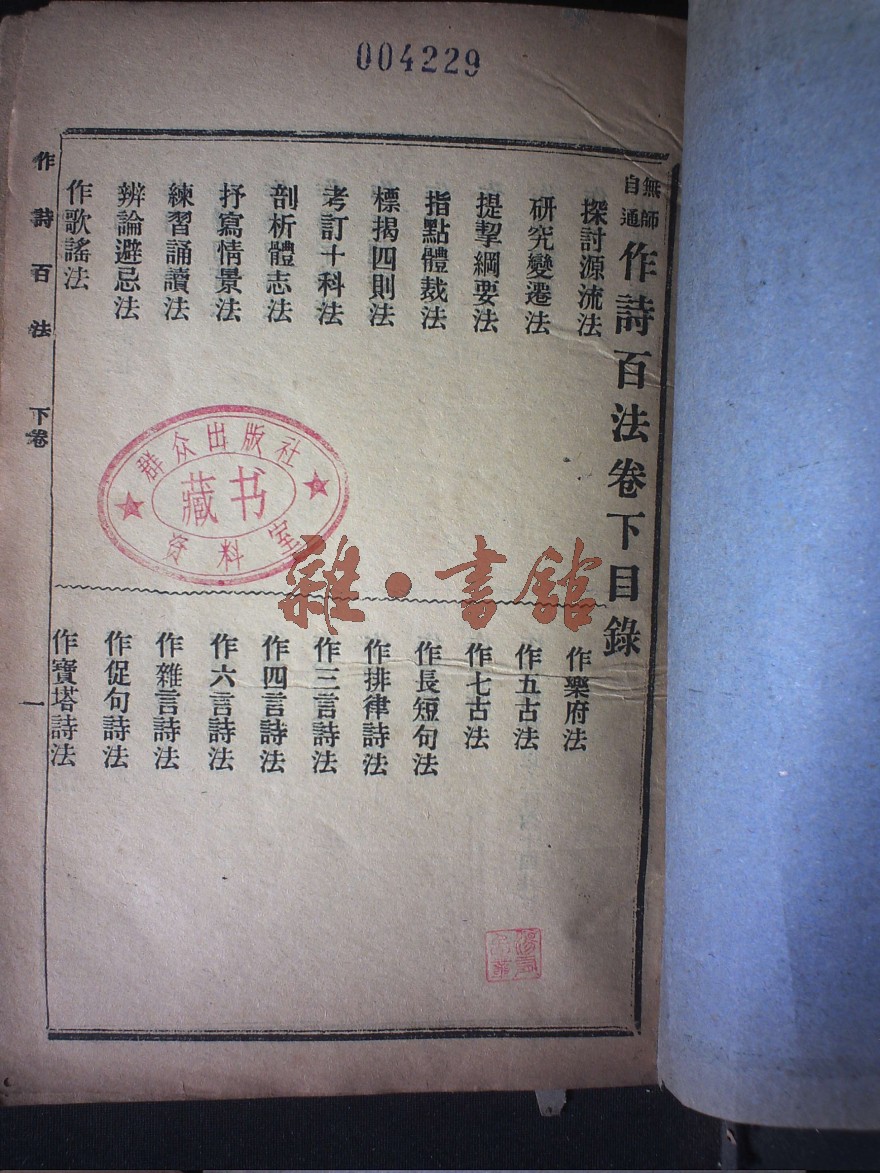 004229
無師自通
作詩百法卷下目錄
探討源流法
研究變遷法
提挈綱要法
指點體裁法
標揭四則法
考訂十科法
剖析體志法
抒寫情景法
練習誦讀法
辨論避忌法
作歌謠法
作樂府法
作五古法
作七古法
作長短句法
作排律詩法
作三言詩法
作四言詩法
作六言詩法
作雜言詩法
作促句詩法
作寶塔詩法
作詩百法
下卷
一
群众出版社
藏书
资料室
雜·書館